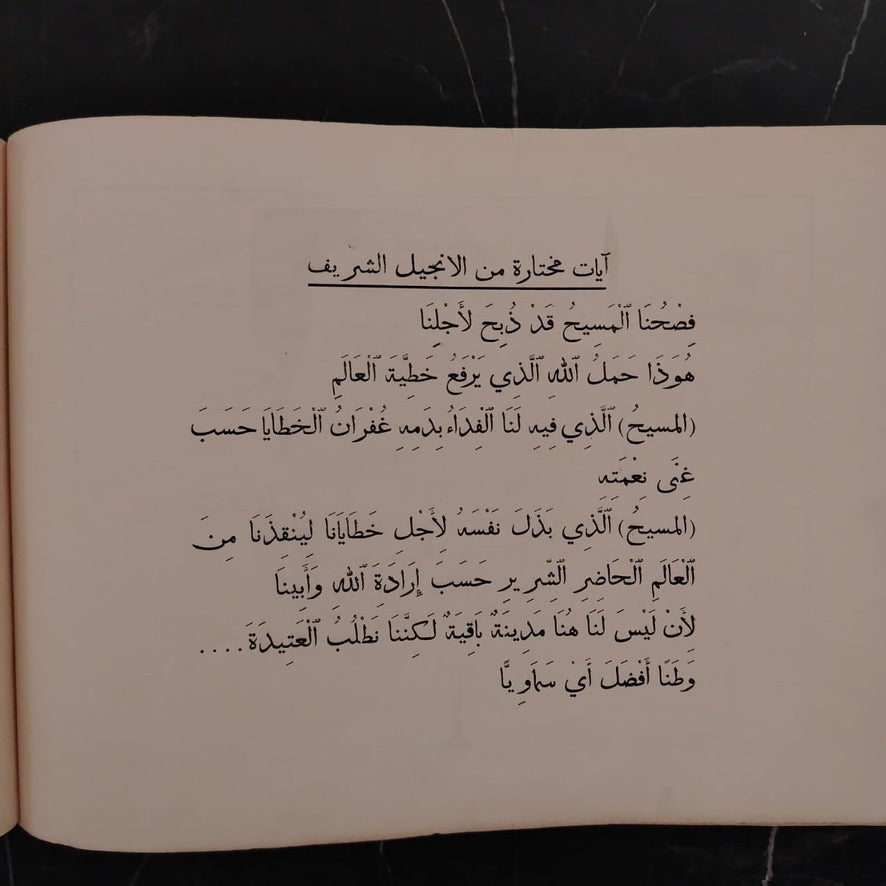 آيات مختارة من الانجيل الشريف
فِصْحُنَا ٱلْمَسِيحُ قَدْ ذُبِحَ لأَجْلِنَا
هُوَذَا حَمَلُ ٱللهِ ٱلَّذِي يَرْفَعُ خَطِيَّةَ ٱلْعَالَمِ
(المسيحُ) ٱلَّذِي فِيهِ لَنَا ٱلْفِدَاءُ بِدَمِهِ غُفْرَانُ ٱلْخَطَايَا حَسَبَ
غِنَى نِعْمَتِهِ
(المسيحُ) ٱلَّذِي بَذَلَ نَفْسَهُ لِأَجْلِ خَطَايَانَا لِيُنْقِذَنَا مِنَ
ٱلْعَالَمِ ٱلْحَاضِرِ ٱلشِّرِيرِ حَسَبَ إِرَادَةِ ٱللهِ وَأَبِينَا
لِأَنْ لَيْسَ لَنَا هُنَا مَدِينَةٌ بَاقِيَةٌ لَكِنَّنَا نَطْلُبُ ٱلْعَتِيدَةَ....
وَطَنًا أَفْضَلَ أَيْ سَمَاوِيًّا